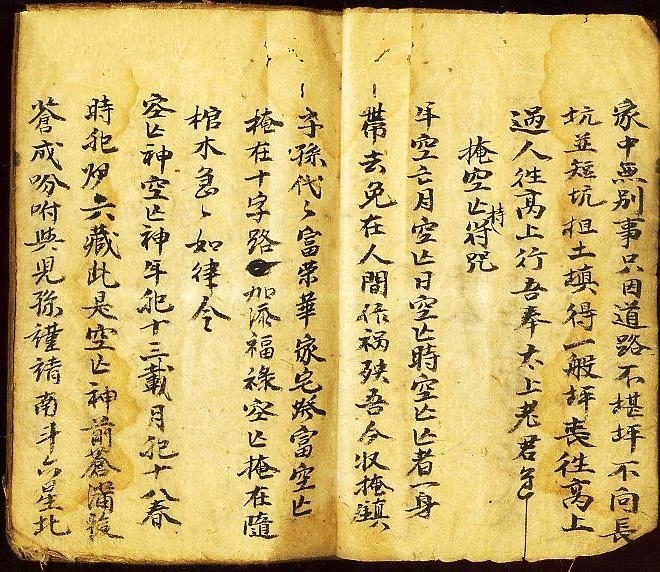 家中無別事只因道路不堪坪不问長
坑並短坑担土填得一般坪丧往高上
過人往高上行吾奉太上老君
掩空亡持符咒
年空亡月空亡日空亡時空亡亡者一身
帶去免在人間作祸殃吾今收掩鎮
子孫代々富荣華家宅發富空亡
掩在十字路加添福祿空亡掩在隨
棺木急々如律令
空亡神空亡神年犯十三載月犯十八春
時犯六藏此是空亡神前蒼滿後
蒼成吩咐與児孫謹請南斗六星北